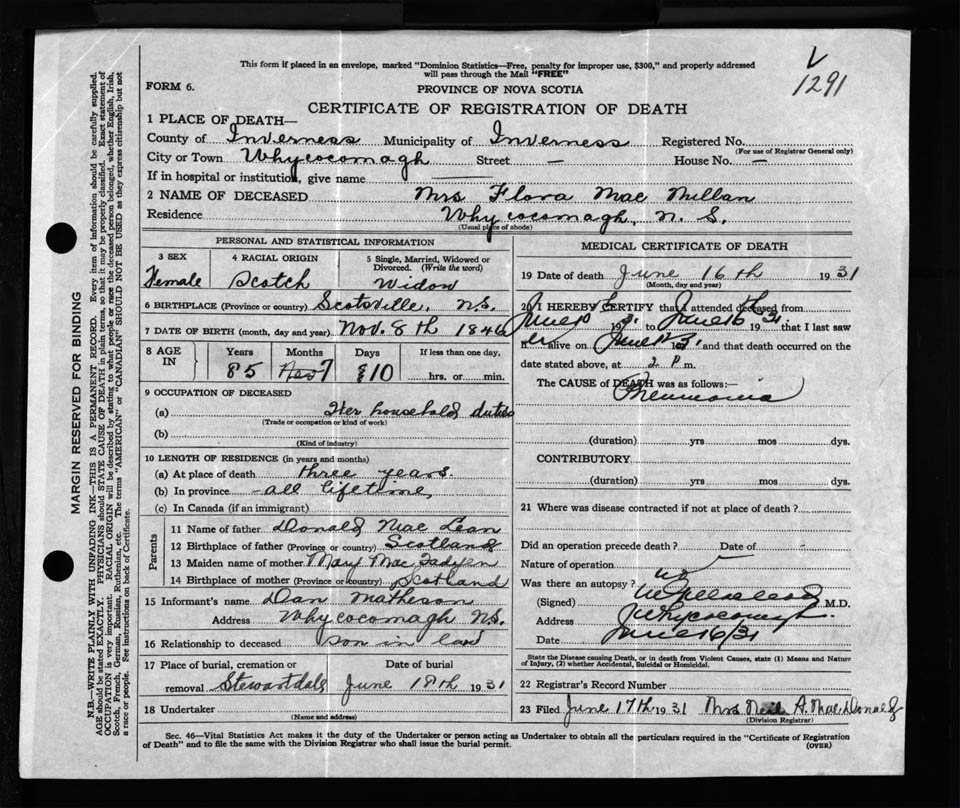 V
1291
This form if placed in an envelope, marked "Dominion Statistics—Free, penalty for improper use, $300," and properly addressed
will pass through the Mail "FREE"
FORM 6.
PROVINCE OF NOVA SCOTIA
CERTIFICATE OF REGISTRATION OF DEATH
1 PLACE OF DEATH—
County of Inverness Municipality of Inverness Registered No.
(For use of Registrar General only)
City or Town Whycocomagh Street — House No. —
If in hospital or institution, give name ——
2 NAME OF DECEASED Mrs Flora Mac Millan
Residence Whycocomagh, N. S.
(Usual place of abode)
PERSONAL AND STATISTICAL INFORMATION
3 SEX 4 RACIAL ORIGIN 5 Single, Married, Widowed or
Divorced. (Write the word)
Female Scotch Widow
6 BIRTHPLACE (Province or country) Scotsville, N.S.
7 DATE OF BIRTH (month, day and year) Nov. 8th 1846
8 AGE IN Years Months Days If less than one day,
85 7 10 hrs. or min.
9 OCCUPATION OF DECEASED
(a) Her household duties
(Trade or occupation or kind of work)
(b)
(Kind of industry)
10 LENGTH OF RESIDENCE (in years and months)
(a) At place of death three years.
(b) In province all lifetime,
(c) In Canada (if an immigrant)
Parents
11 Name of father Donald Mac Lean
12 Birthplace of father (Province or country) Scotland
13 Maiden name of mother Mary Mac Fadyen
14 Birthplace of mother (Province or country) Scotland
15 Informant's name Dan Matheson
Address Whycocomagh N.S.
16 Relationship to deceased son in law
17 Place of burial, cremation or Date of burial
removal Stewartdale June 18th 1931
18 Undertaker
(Name and address)
MEDICAL CERTIFICATE OF DEATH
19 Date of death June 16th 1931
(Month, day and year)
20 I HEREBY CERTIFY that I attended deceased from
June 10 1931 to June 16 1931 that I last saw
her alive on June 19 31 and that death occurred on the
date stated above, at 2 P m.
The CAUSE of DEATH was as follows:—
Pneumonia
(duration) yrs mos dys.
CONTRIBUTORY
(duration) yrs mos dys.
21 Where was disease contracted if not at place of death?
Did an operation precede death? Date of -
Nature of operation
Was there an autopsy? no
(Signed) M.D.
Address Whycocomagh
Date June 16/31
State the Disease causing Death, or in death from Violent Causes, state (1) Means and Nature
of Injury, (2) whether Accidental, Suicidal or Homicidal.
22 Registrar's Record Number
23 Filed June 17th 1931 Mrs Neil A. MacDonald
(Division Registrar)
Sec. 46—Vital Statistics Act makes it the duty of the Undertaker or person acting as Undertaker to obtain all the particulars required in the "Certificate of Registration
of Death" and to file the same with the Division Registrar who shall issue the burial permit.
(OVER)
MARGIN RESERVED FOR BINDING
N.B.—WRITE PLAINLY WITH UNFADING INK—THIS IS A PERMANENT RECORD. Every item of information should be carefully supplied.
AGE should be stated EXACTLY. PHYSICIANS should STATE CAUSE OF DEATH in plain terms, so that it may be properly classified. Exact statement of
OCCUPATION is very important. RACIAL ORIGIN will be described by stating to what people or race the deceased person belonged, whether English, Irish,
Scotch, French, German, Russian, Ruthenian, etc. The terms "AMERICAN" or "CANADIAN" SHOULD NOT BE USED as they express citizenship but not
a race or people. See instructions on back of Certificate.